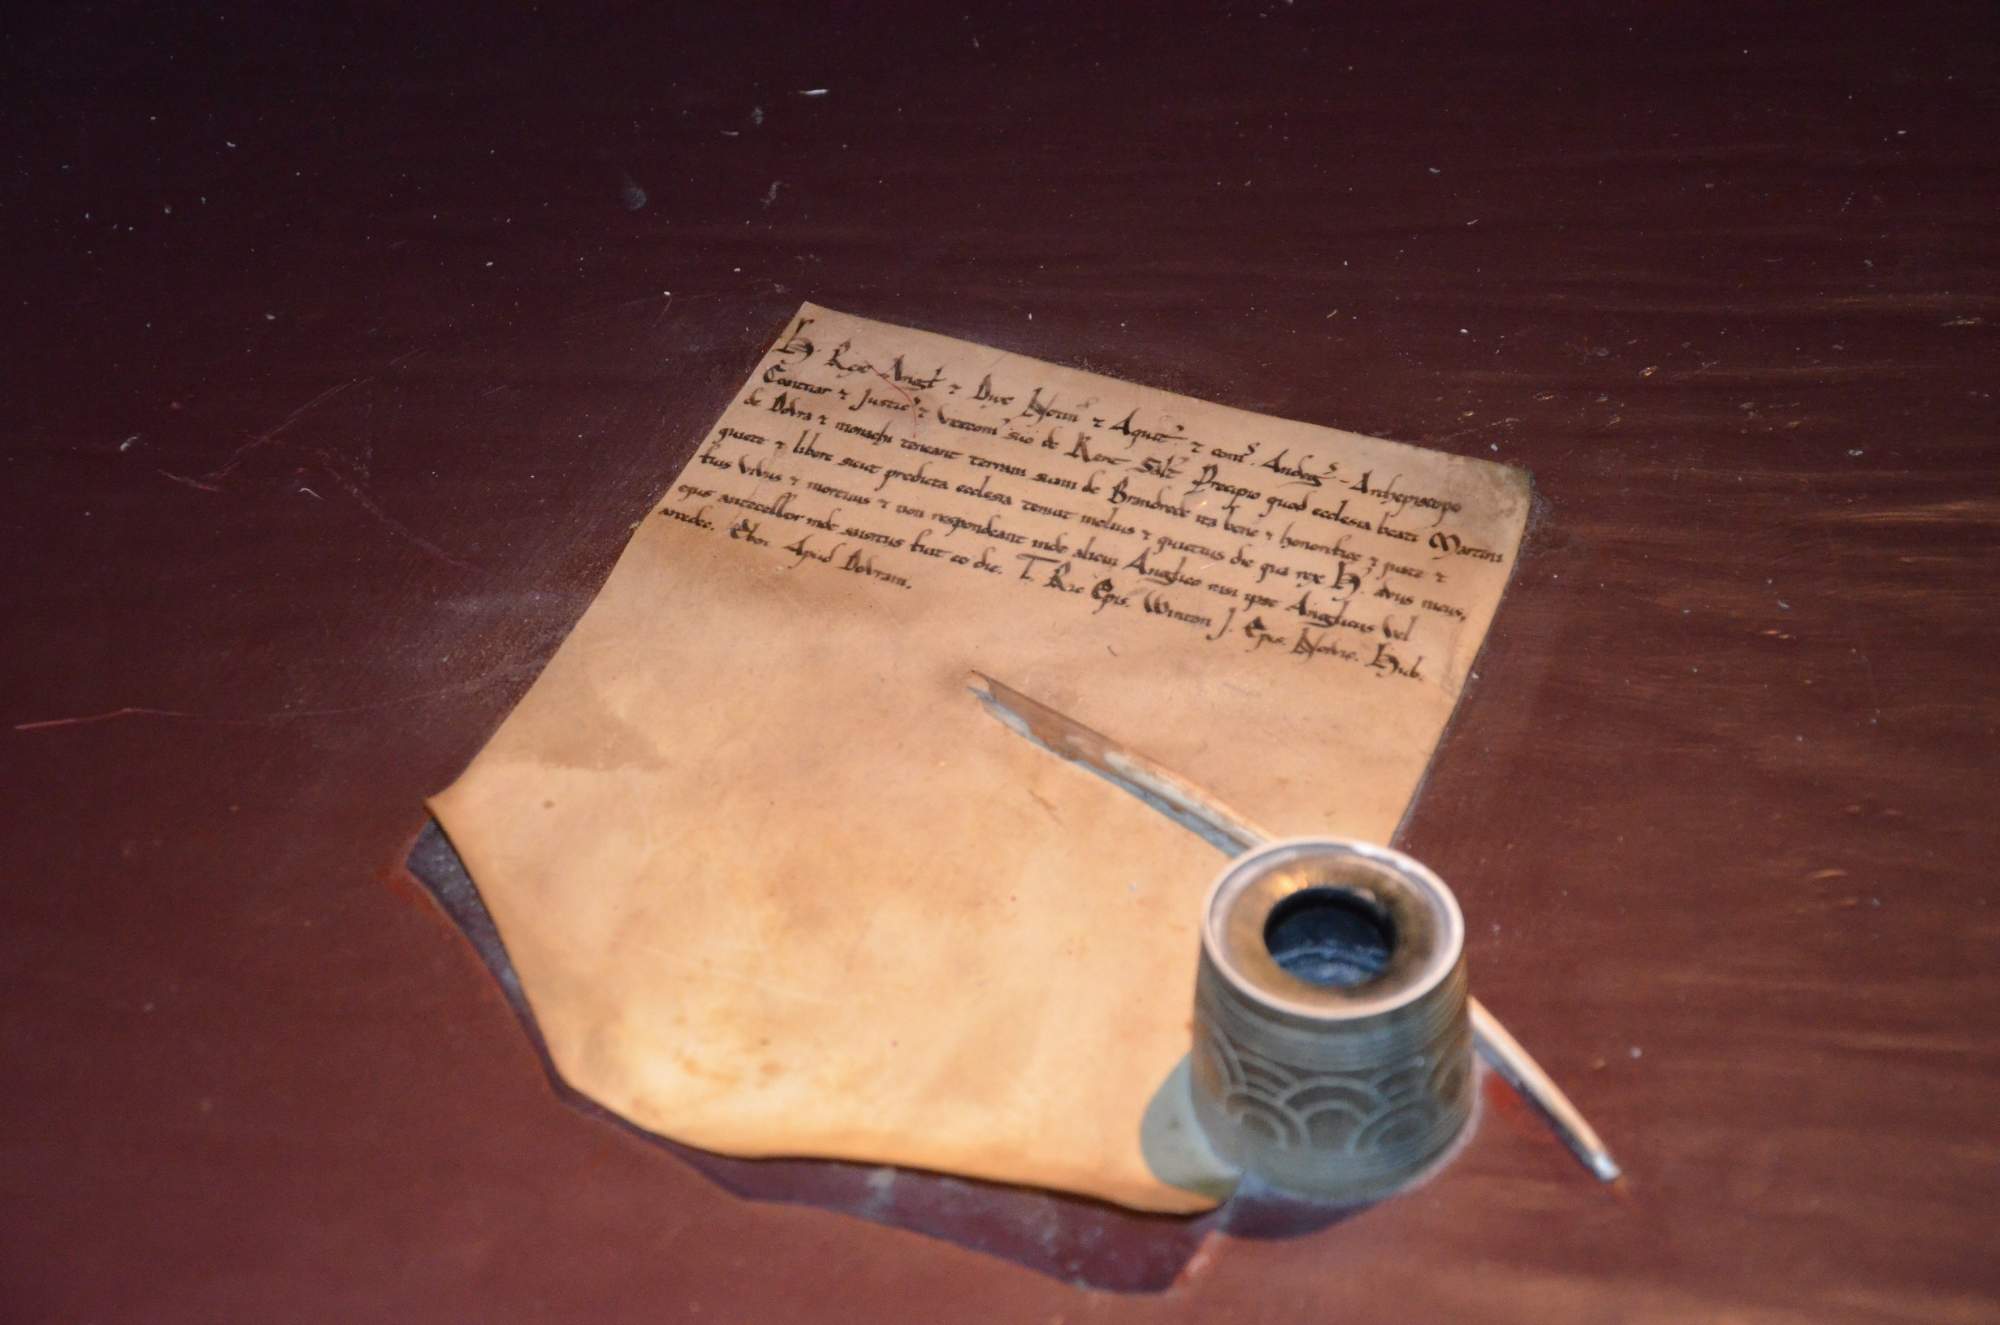 H. Rex Angl ⁊ Dux Norm ⁊ Aquit ⁊ com. Andeg - Archepiscopo
Cantuar ⁊ Justic ⁊ Vetcom suo de Kent Salt Precipio quod ecclesia beati Martini
de Dovra ⁊ monachi teneant terram suam de Brandrede ita bene ⁊ honorifice ⁊ juste ⁊
quiete ⁊ libere sicut predicta ecclesia tenuit melius ⁊ quietius die qua rex H. avus meus,
fuis vivus ⁊ mortuus ⁊ non respondeant inde alicui Anglico nisi ipse Anglicus vel
ejus antecessor inde saisitus fuit eo die. T. Ric Epis. Winton J. Epis. Norvic. Hub.
arcedec. Ebor. Apud Dovram.